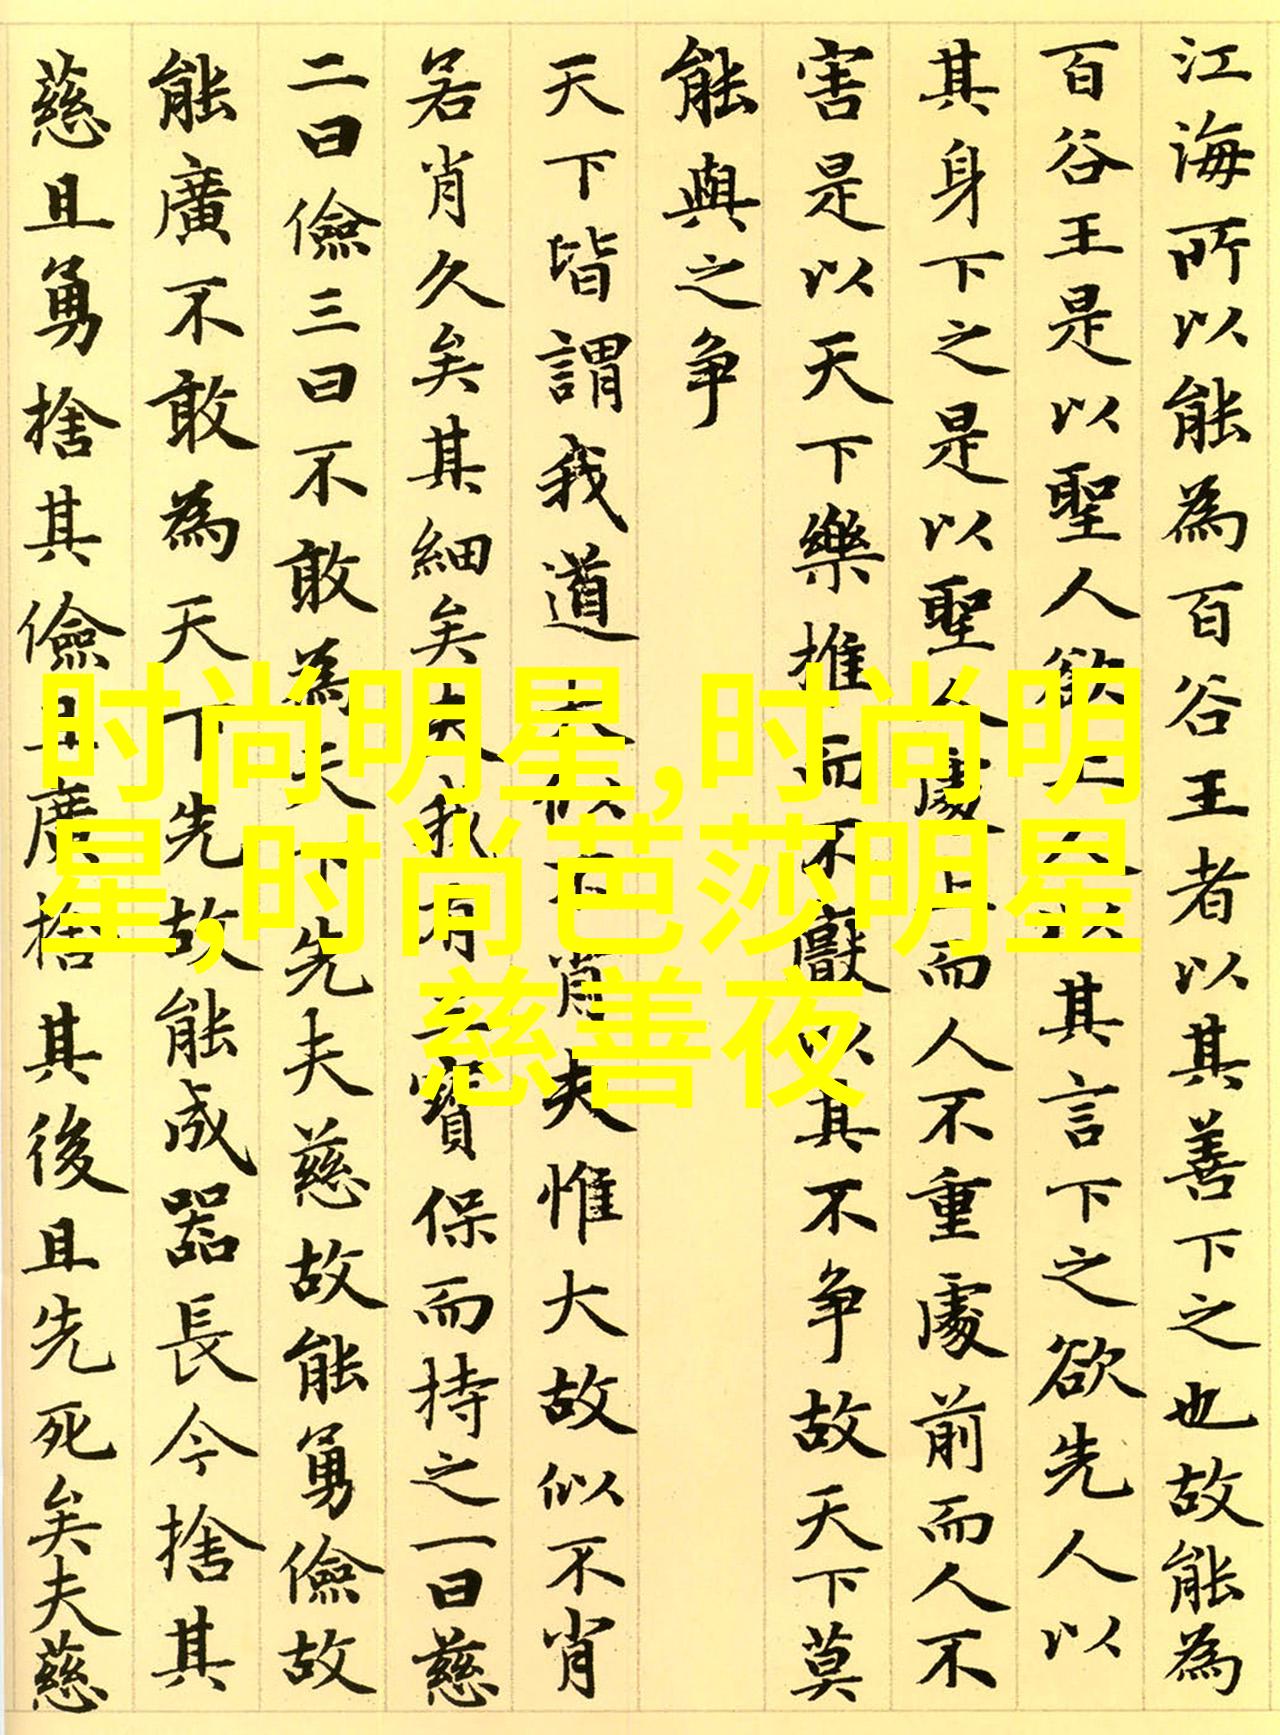 江海所以能為百谷王者以其善下之也故能為
百谷王是以聖人欲上人以其言下之欲先人以
其身下之是以聖人處上而人不重處前而人不
害是以天下樂推而不厭以其不争故天下莫
能與之争
天下皆謂我道大似不肖夫惟大故似不肖
若肖久矣其細矣夫我有三寶保而持之一曰慈
二曰儉三曰不敢為天下先夫慈故能勇儉故
能廣不敢為天下先故能成器長今捨其
慈且勇捨其儉且廣捨其後且先死矣夫慈
时尚明星,时尚明
星,时尚芭莎明星
慈善夜